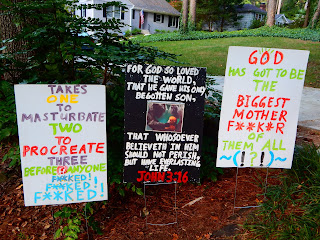 TAKES
ONE TO
MASTURBATE
TWO
TO
PROCREATE
THREE
BEFORE ANYONE
F**KED!
F**KED!!
F**KED!
FOR GOD SO LOVED
THE WORLD,
THAT HE GAVE HIS ONLY
BEGOTTEN SON,
THAT WHOSOEVER
BELIEVETH IN HIM
SHOULD NOT PERISH,
BUT HAVE EVERLASTING
LIFE.
JOHN 3:16
GOD
HAS GOT TO BE
THE
BIGGEST
MOTHER
F**K*R
OF
THEM ALL
~(!?!)~